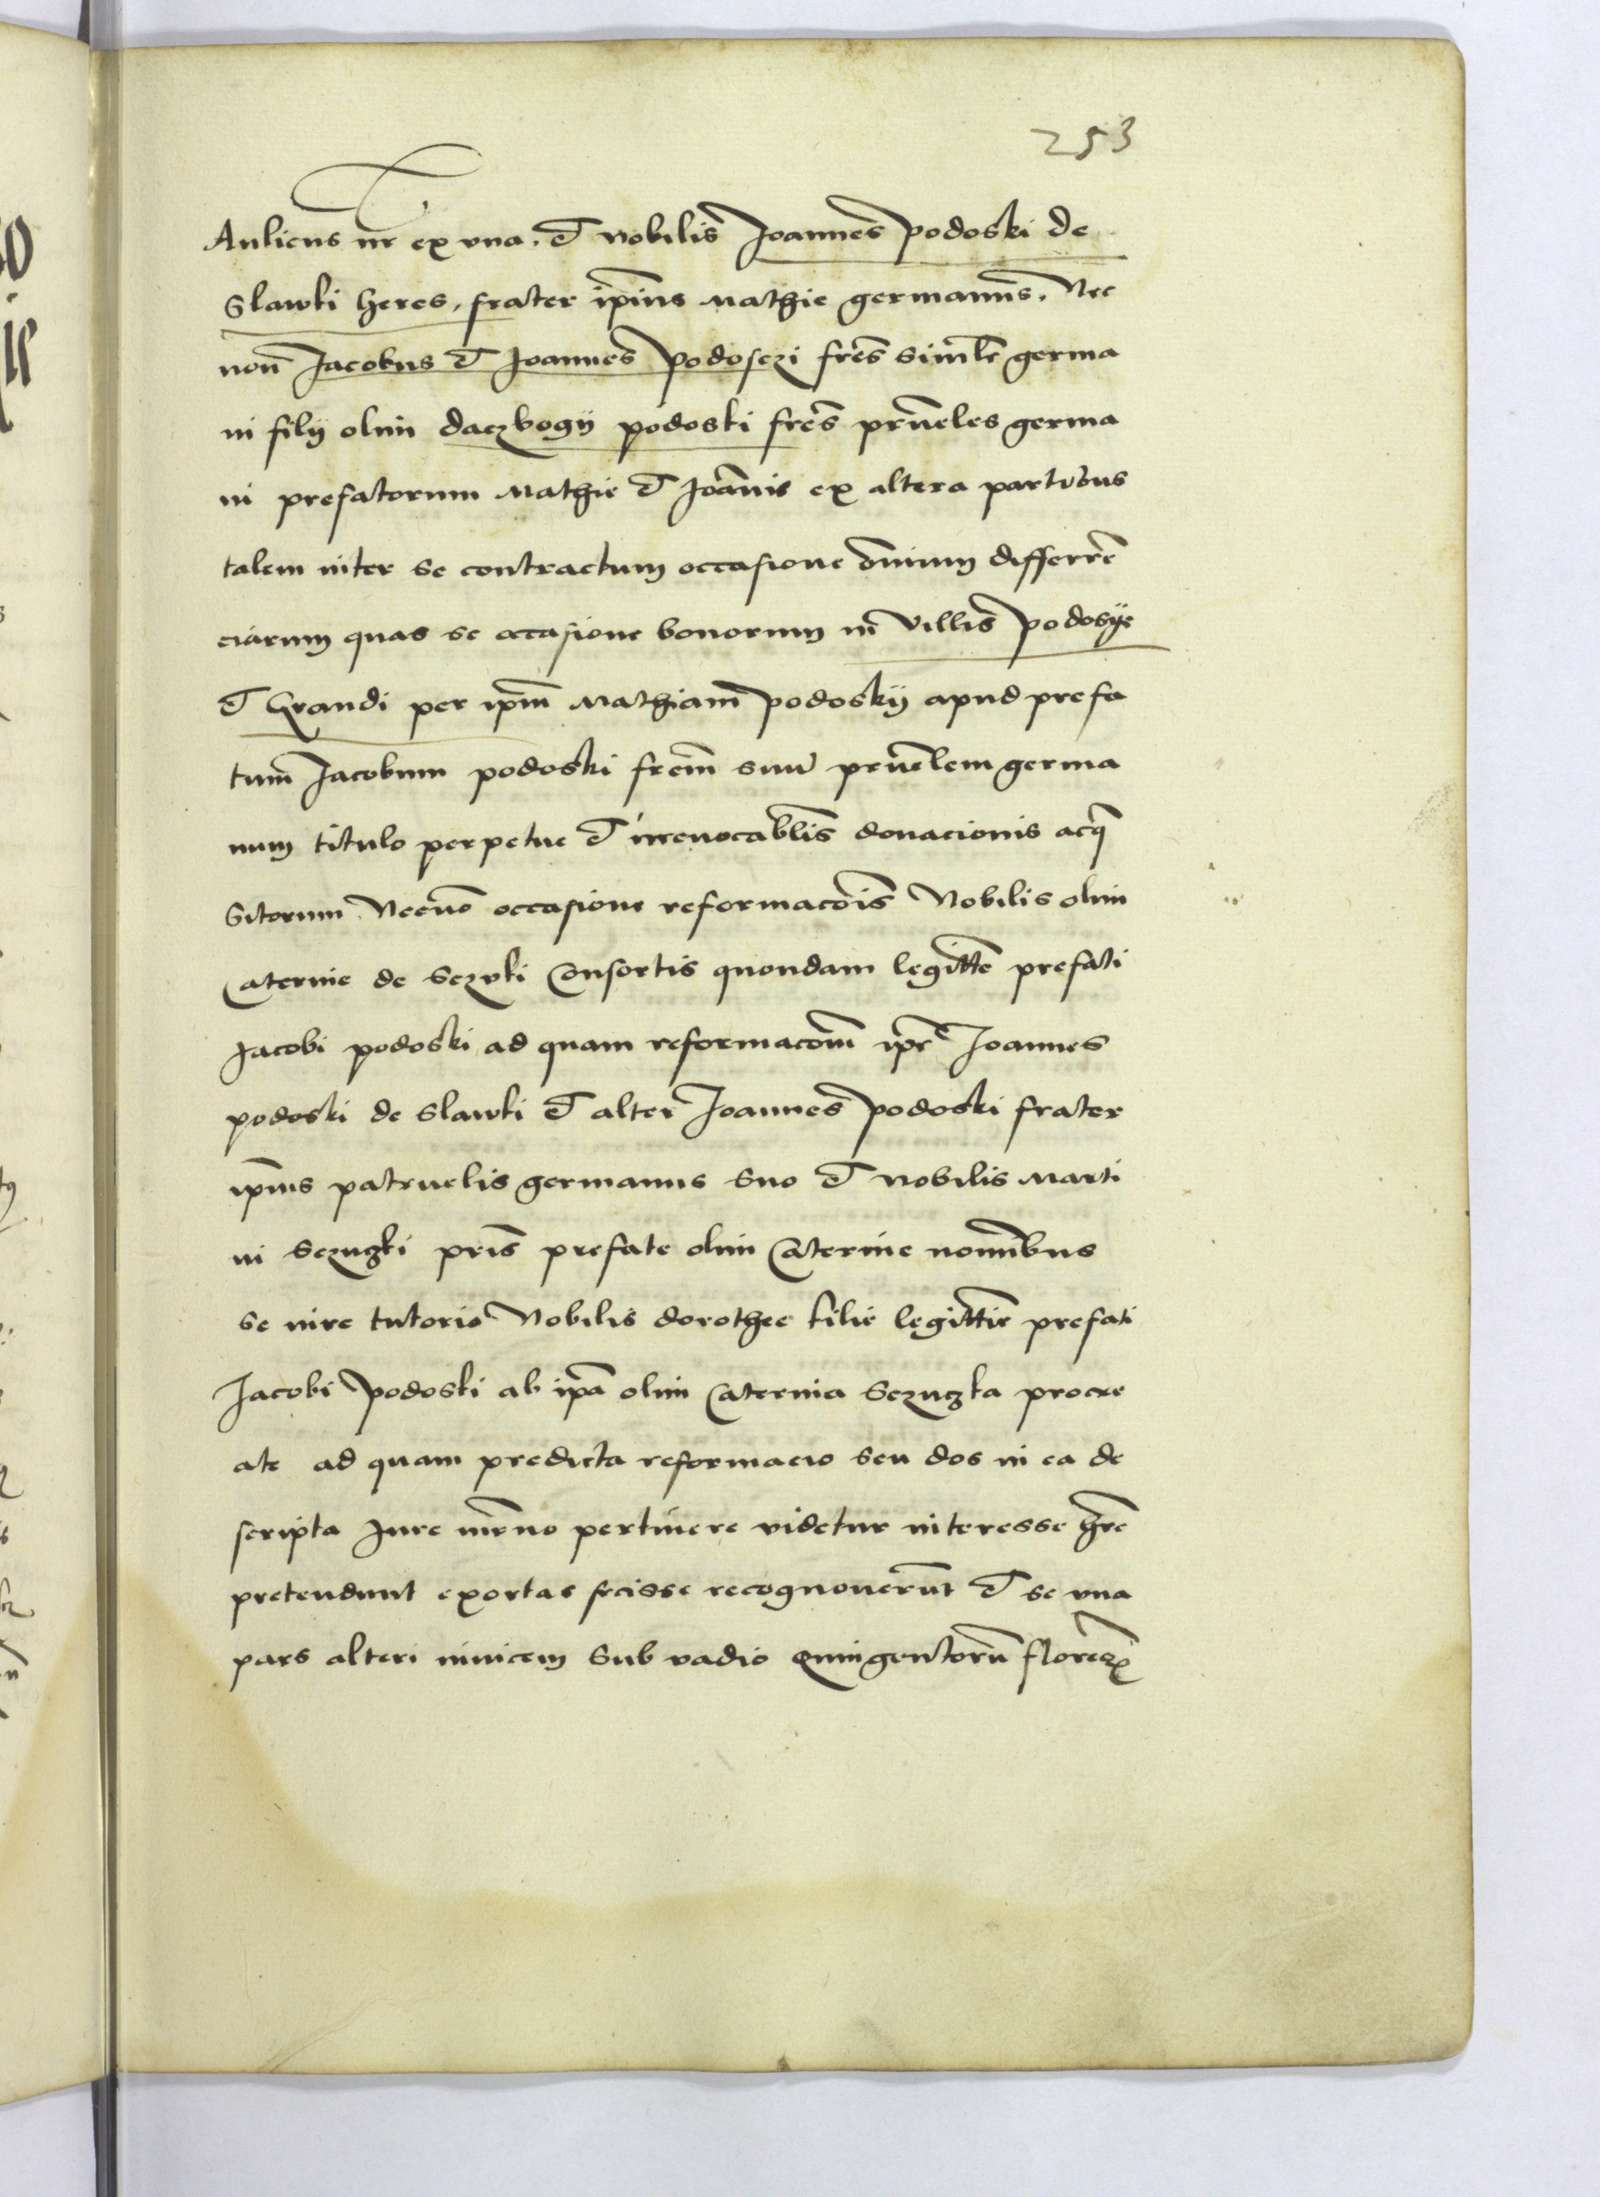 253
Aulicus nr ex vna. et Nobilis Joannes Podoski de
Slawki heres, frater ipius Mathie germanus. Nec
non Jacobus et Joannes Podosczi fres simlr germa
ni filij olim daczbogij podoski fres prueles germa
ni prefatorum Mathie et Joannis ex altera partibus
talem inter se contractum occasione omnium differen
ciarum quas se occasione bonorum in villis Podosÿe
et Grandi per ipm Mathiam Podoskij apud prefa
tum Jacobum podoski frem suu pruelem germa
num titulo perpetue et irreuocablis donacionis acq
sitorum Necno occasione reformacois Nobilis olim
Caterine de Sczuki Consortis quondam legitte prefati
Jacobi podoski ad quam reformacom ipe Joannes
podoski de Slawki et alter Joannes Podoski frater
ipius patruelis germanus suo et nobilis Marti
ni Sczuczki pris prefate olim Caterine nominibus
se iure tutorio Nobilis dorothee filie legittie prefati
Jacobi Podoski ab ipa olim Caterina Sczuczka procre
ate ad quam predicta reformacio seu dos in ea de
scripta Jure mrno pertinere videtur interesse hre
pretendunt exortas fcisse recognouerunt et se vna
pars alteri inuicem sub vadio Quingentoru florenor